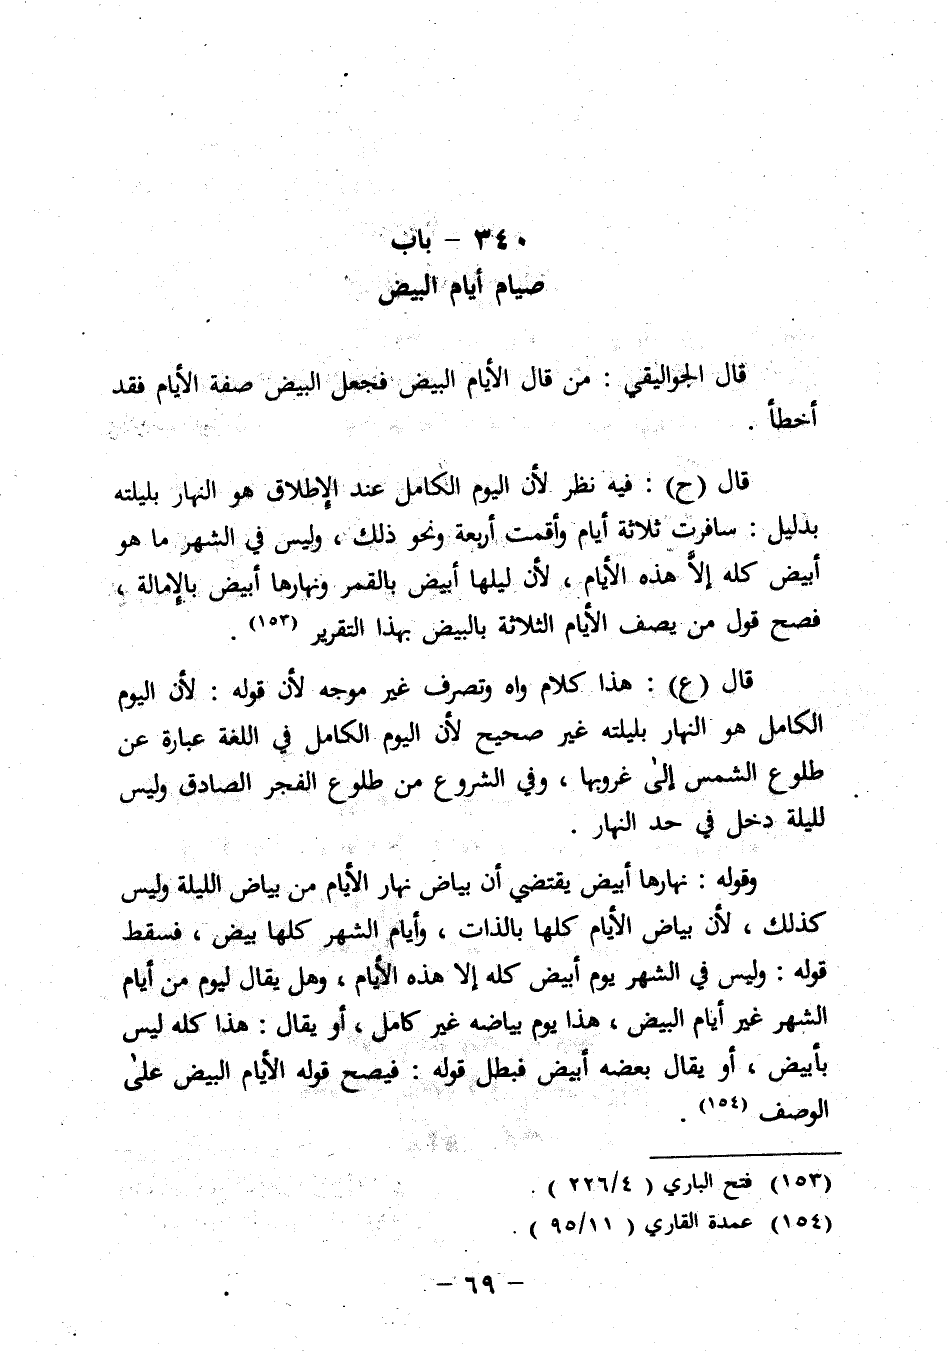 ٣٤٠ – باب
صيام أيام البيض
قال الجواليقي : من قال الأيام البيض فجعل البيض صفة الأيام فقد
أخطأ .
قال (ح) : فيه نظر لأن اليوم الكامل عند الإطلاق هو النهار بليلته
بدليل : سافرت ثلاثة أيام وأقمت أربعة ونحو ذلك ، وليس في الشهر ما هو
أبيض كله إلاَّ هذه الأيام ، لأن ليلها أبيض بالقمر ونهارها أبيض بالإمالة ،
فصح قول من يصف الأيام الثلاثة بالبيض بهذا التقرير (١٥٣) .
قال (ع) : هذا كلام واه وتصرف غير موجه لأن قوله : لأن اليوم
الكامل هو النهار بليلته غير صحيح لأن اليوم الكامل في اللغة عبارة عن
طلوع الشمس إلىٰ غروبها ، وفي الشروع من طلوع الفجر الصادق وليس
لليلة دخل في حد النهار .
وقوله : نهارها أبيض يقتضي أن بياض نهار الأيام من بياض الليلة وليس
كذلك ، لأن بياض الأيام كلها بالذات ، وأيام الشهر كلها بيض ، فسقط
قوله : وليس في الشهر يوم أبيض كله إلا هذه الأيام ، وهل يقال ليوم من أيام
الشهر غير أيام البيض ، هذا يوم بياضه غير كامل ، أو يقال : هذا كله ليس
بأبيض ، أو يقال بعضه أبيض فبطل قوله : فيصح قوله الأيام البيض علىٰ
الوصف (١٥٤) .
(١٥٣) فتح الباري ( ٢٢٦/٤ ) .
(١٥٤) عمدة القاري ( ٩٥/١١ ) .
– ٦٩ –